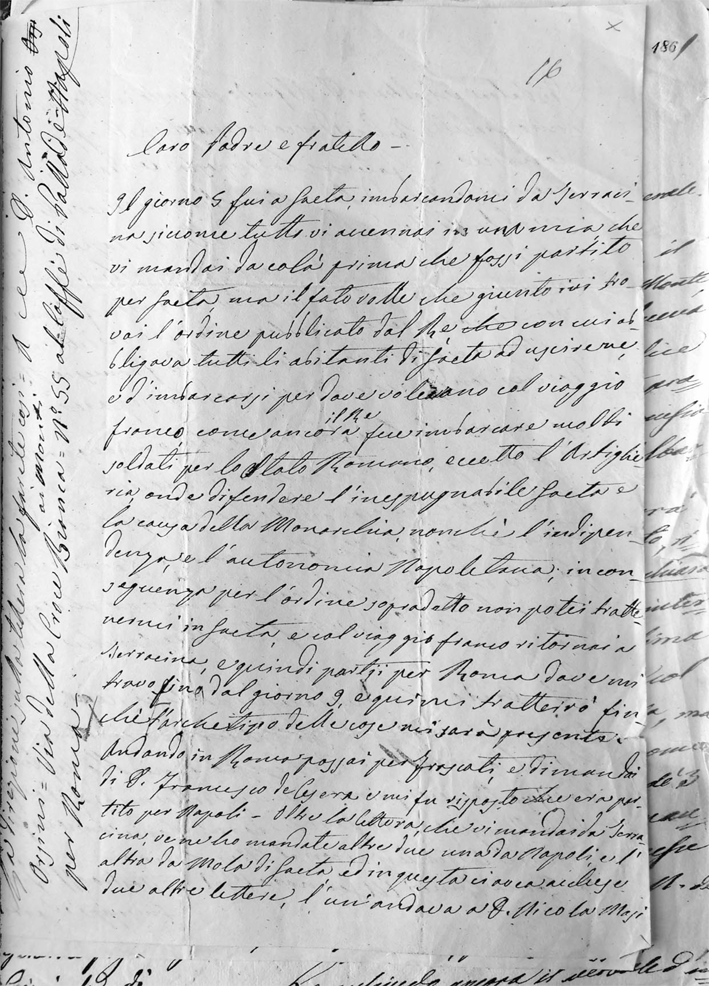 186
16
Caro Padre e fratello -
Il giorno 5 fui a Gaeta, imbarcandomi da Terraci-
na siccome tutto vi accennai in una mia che
vi mandai da colà prima che fossi partito
per Gaeta, ma il fato volle che giunto ivi tro
vai l'ordine pubblicato dal Re che con cui ob
bligava tutti li abitanti di Gaeta ad uscirene,
ed imbarcarsi per dove volevano col viaggio
franco come ancora il Re fece imbarcare molti
soldati per lo Stato Romano, eccetto l'Artiglie
ria, onde difendere l'inespugnabile Gaeta e
la causa della Monarchia, nonchè l'indipen-
denza, e l'autonomia Napoletana; in con-
seguenza per l'ordine sopradetto non potei tratte
nermi in Gaeta, e col viaggio franco ritornai a
Terracina, e quindi partji per Roma dove mi
trovo fino dal giorno 9, e quivi tratterrò fin
che l'archetipo delle cose mi sarà presente.
Andando in Roma passai per Frascati, e dimandai
di D. Francesco de Cesera e mi fu risposto che era par-
tito per Napoli - Oltre la lettera, che vi mandai da Terra-
cina, ve ne ho mandate altre due una da Napoli, e l'
altra da Mola di Gaeta, ed in questa ci avea acchiuse
due altre lettere, l'un andava a D. Nicola Masi
la farete così = A D. Antonio
Orsini = Via della Croce Bianca = N° 55 ai Monti
al Caffè di
per Roma.